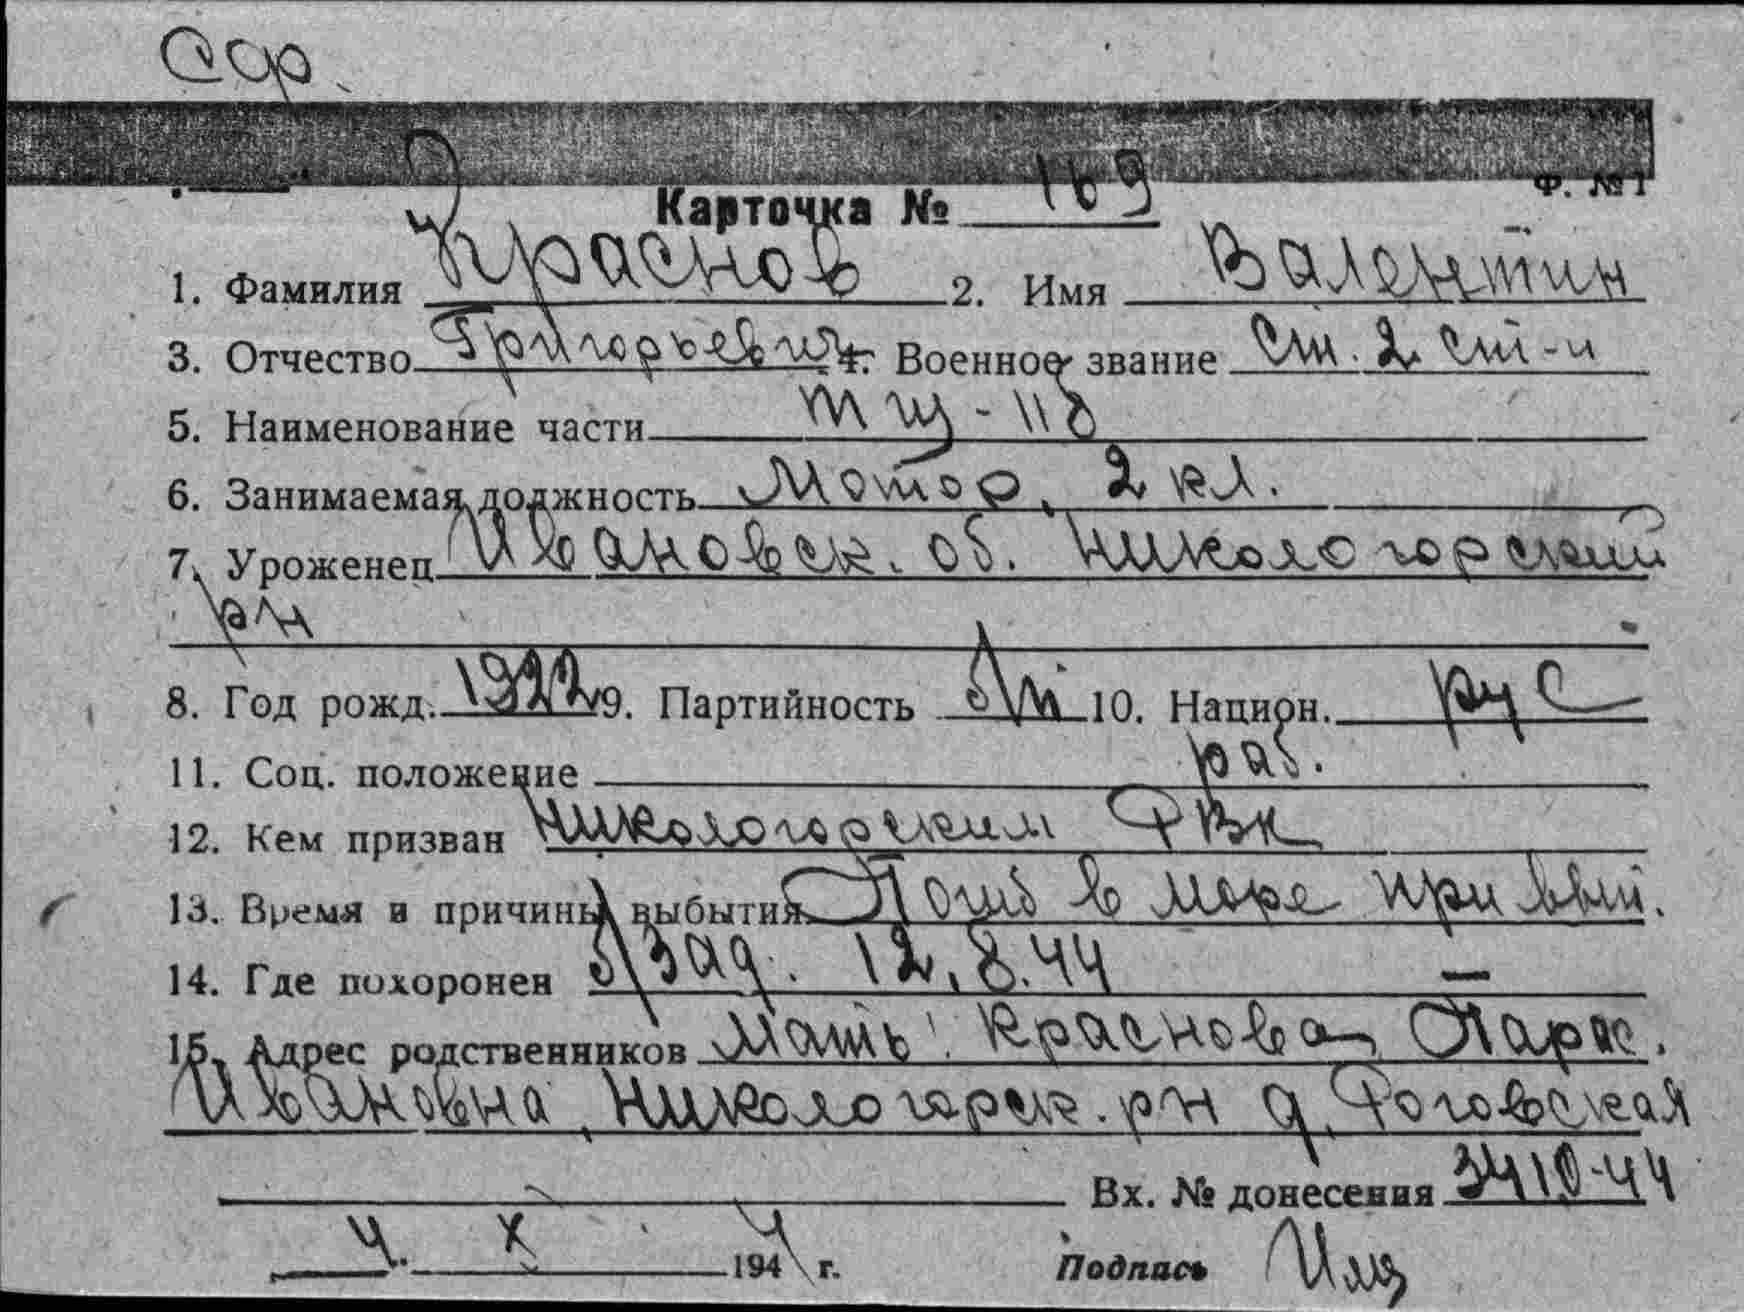 Ф. № 1
Карточка № 169
1. Фамилия Краснов 2. Имя Валентин
3. Отчество Григорьевич 4. Военное звание Ст. 2 ст-и
5. Наименование части тщ-118
6. Занимаемая должность Мотор. 2 кл.
7. Уроженец Ивановск. об. Николо горский
р-н
8. Год рожд. 1922 9. Партийность б/п 10. Национ. рус
11. Соц. положение раб.
12. Кем призван Никологорским РВК
13. Время и причины выбытия Погиб в море при вып.
14. Где похоронен б/зад. 12.8.44 —
15. Адрес родственников Мать: Краснова Парас.
Ивановна, Николо горск. р-н д. Роговская
Вх. № донесения 3410-44
4. X 1944 г. Подпись